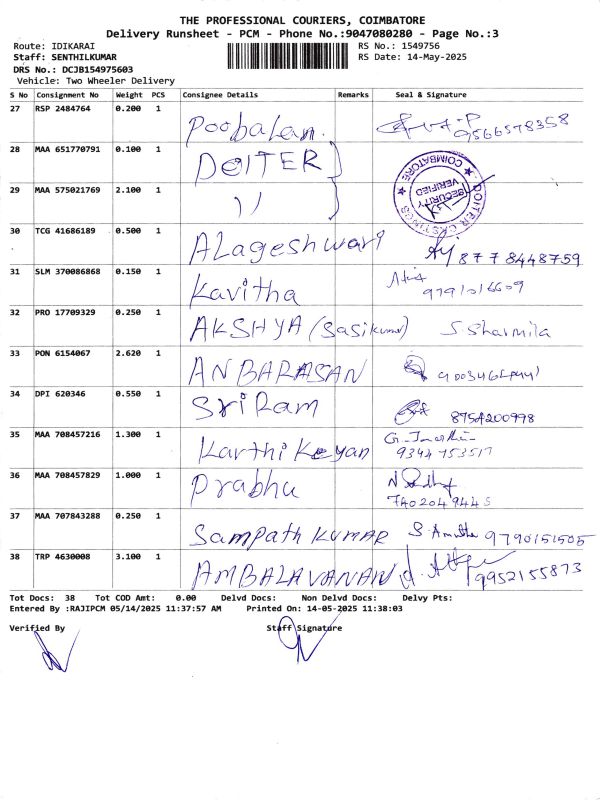 THE PROFESSIONAL COURIERS, COIMBATORE
Delivery Runsheet - PCM - Phone No.:9047080280 - Page No.:3
Route: IDIKARAI
RS No.: 1549756
Staff: SENTHILKUMAR
RS Date: 14-May-2025
DRS No.: DCJB154975603
Vehicle: Two Wheeler Delivery
S No Consignment No Weight PCS Consignee Details Remarks Seal & Signature
27 RSP 2484764 0.200 1 Poobalan 9566578358
28 MAA 651770791 0.100 1 DOITER
COIMBATORE
SECURITY
VERIFIED
DOITER CASTINGS
29 MAA 575021769 2.100 1 〃
30 TCG 41686189 0.500 1 ALageshwari 8778448759
31 SLM 370086868 0.150 1 Kavitha 9791016609
32 PRO 17709329 0.250 1 AKSHYA (Sasikumar) S Sharmila
33 PON 6154067 2.620 1 ANBARASAN
34 DPI 620346 0.550 1 Sri Ram 8754200998
35 MAA 708457216 1.300 1 KarthiKeyan 9344753517
36 MAA 708457829 1.000 1 Prabhu 7402049445
37 MAA 707843288 0.250 1 Sampath KUMAR 9790151505
38 TRP 4630008 3.100 1 AMBALAVANAN 9952155873
Tot Docs: 38 Tot COD Amt: 0.00 Delvd Docs: Non Delvd Docs: Delvy Pts:
Entered By :RAJIPCM 05/14/2025 11:37:57 AM Printed On: 14-05-2025 11:38:03
Verified By Staff Signature